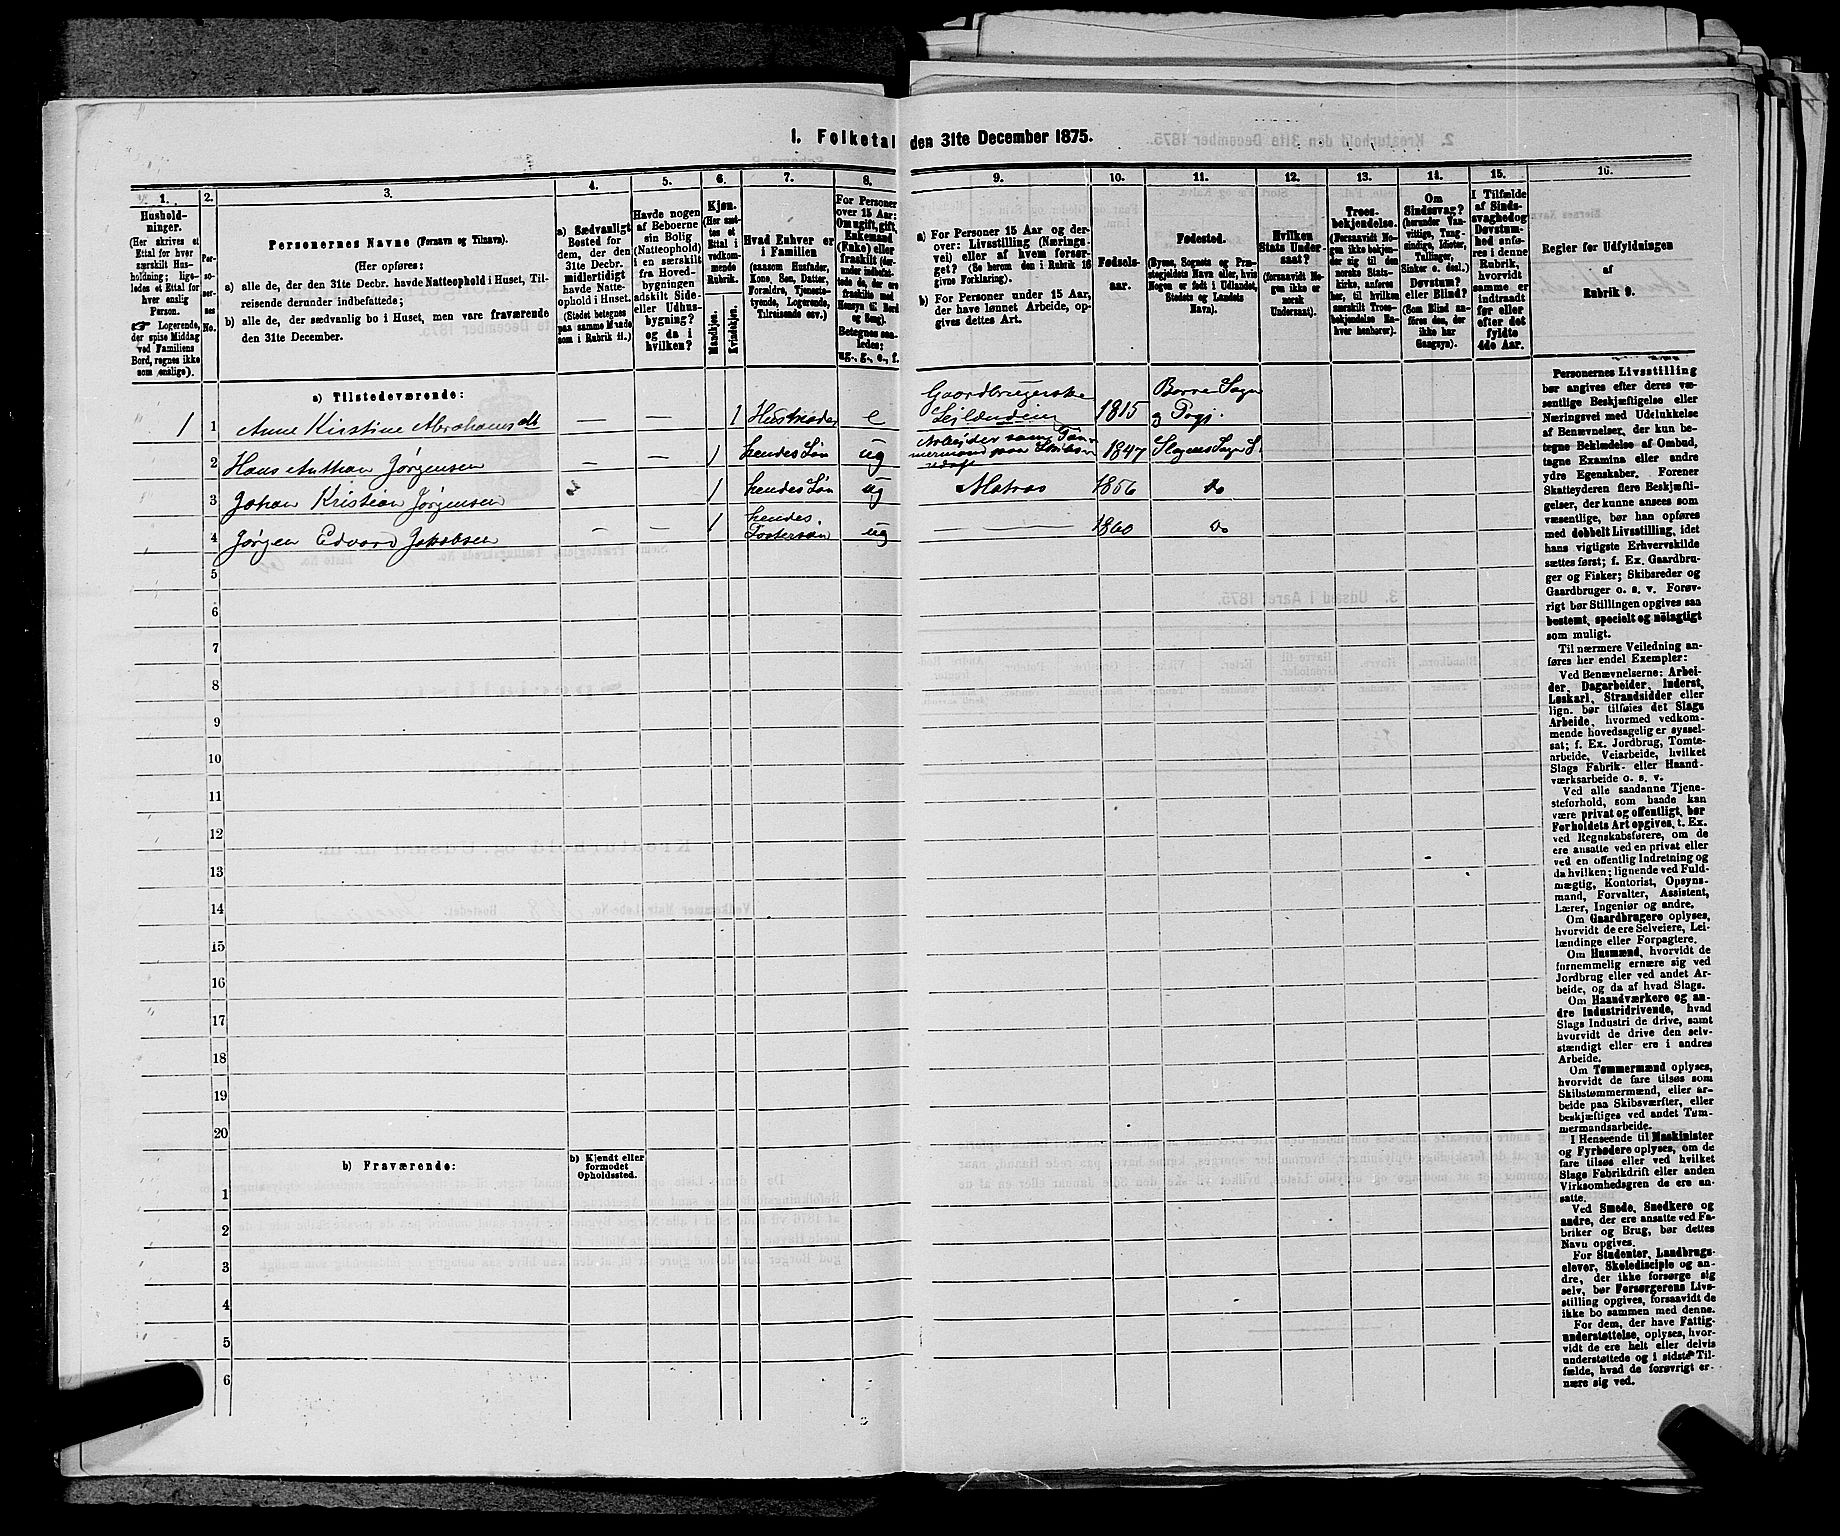 1. Folketal den 31te December 1875.
1.
Hushold-
ninger.
(Her skrives et
Ettal for hver
særskilt Hus-
holdning; lige-
ledes et Ettal for
hver enslig
Person.
☞ Logerende,
der spise Middag
ved Familiens
Bord, regnes ikke
som enslige).
2.
Per-
so-
ner-
nes
No.
3.
Personernes Navne (Fornavn og Tilnavn).
(Her opføres:
a) alle de, der den 31te Decbr. havde Natteophold i Huset, Til-
reisende derunder indbefattede;
b) alle de, der sædvanlig bo i Huset, men vare fraværende
den 31te December.
4.
a) Sædvanligt
Bosted for
dem, der den
31te Decbr.
midlertidigt
havde Natte-
ophold i Huset.
(Stedet betegnes
paa samme Maade
som i Rubrik 11.)
5.
Havde nogen
af Beboerne
sin Bolig
(Natteophold)
i en særskilt
fra Hoved-
bygningen
adskilt Side-
eller Udhus-
bygning?
og da i
hvilken?
6.
Kjøn.
(Her sæt-
tes et
Ettal i
vedkom-
mende
Rubrik.
Mandkjøn.
Kvindekjøn.
7.
Hvad Enhver er
i Familien
(saasom Husfader,
Kone, Søn, Datter,
Forældre, Tjeneste-
tyende, Logerende,
Tilreisende osv.)
8.
For Personer
over 15 Aar:
Om ugift, gift,
Enkemand
(Enke) eller
fraskilt (der-
under indbefat-
tede de, der ere
fraskilte med
Hensyn til Bord
og Seng).
Betegnes saa-
ledes:
ug., g., e., f.
9.
a) For Personer 15 Aar og der-
over: Livsstilling (Nærings-
vei) eller af hvem forsør-
get? (Se herom den i Rubrik 16
givne Forklaring).
b) For Personer under 15 Aar,
der have lønnet Arbeide, op-
gives dettes Art.
10.
Fødsels-
aar.
11.
Fødested.
(Byens, Sognets og Præ-
stegjeldets Navn eller, hvis
Nogen er født i Udlandet,
Stedets og Landets
Navn).
12.
Hvilken
Stats Under-
saat?
(forsaavidt No-
gen ikke er
norsk
Undersaat).
13.
Troes-
bekjendelse.
(Forsaavidt No-
gen ikke bekjen-
der sig til den
norske Stats-
kirke, anføres
her, til hvilken
særskilt Troes-
bekjendelse En-
hver henhører).
14.
Om
Sindssvag?
(herunder Van-
vittige, Tung-
sindige, Idioter,
Tullinger,
Sinker o. desl.)
Døvstum?
eller Blind?
(Som Blind an-
føres den, der
ikke har
Gangsyn).
15.
I Tilfælde
af Sinds-
svaghed og
Døvstum-
hed anfø-
res i denne
Rubrik,
hvorvidt
samme er
indtraadt
før eller
efter det
fyldte
4de Aar.
16.
Regler for Udfyldningen
af
Rubrik 9.
a) Tilstedeværende:
1 1 Anne Kirstine Abrahamsdt — — 1 Husmoder e Gaardbrugerske Leilænding 1815 Borre Sogn og Prgj.
2 Hans Anthon Jørgensen — — 1 hendes Søn ug Arbeider som Tøm-
mermand paa 1847 Slagens Sogn
3 Johan Kristian Jørgensen 1 hendes Søn ug Matros 1856 do
4 Jørgen Edvard Jakobsen — — 1 hendes
Fostersøn ug — 1860 do
5
6
7
8
9
10
11
12
13
14
15
16
17
18
19
20
b) Fraværende:
b) Kjendt eller
formodet
Opholdssted.
1
2
3
4
5
6
Personernes Livsstilling
bør angives efter deres væ-
sentlige Beskjæftigelse eller
Næringsvei med Udelukkelse
af Benævnelser, der kun be-
tegne Beklædelse af Ombud,
tagne Examina eller andre
ydre Egenskaber. Forener
Skatteyderen flere Beskjæfti-
gelser, der kunne ansees som
væsentlige, bør han opføres
med dobbelt Livsstilling, idet
hans vigtigste Erhvervskilde
sættes først; f. Ex. Gaardbru-
ger og Fisker; Skibsreder og
Gaardbruger o. s. v. Forøv-
rigt bør Stillingen opgives saa
bestemt, specielt og nöiagtigt
som muligt.
Til nærmere Veiledning an-
føres her endel Exempler:
Ved Benævnelserne: Arbei-
der, Dagarbeider, Inderst,
Løskarl, Strandsidder eller
lign. bør tilføies det Slags
Arbeide, hvormed vedkom-
mende hovedsagelig er syssel-
sat; f. Ex. Jordbrug, Tomte-
arbeide, Veiarbeide, hvilket
Slags Fabrik- eller Haand-
værksarbeide o. s. v.
Ved alle saadanne Tjene-
steforhold, som baade kan
være privat og offentligt, bør
Forholdets Art opgives, t. Ex.
ved Regnskabsførere, om de
ere ansatte ved en privat eller
ved en offentlig Indretning og
da hvilken; lignende ved Fuld-
mægtig, Kontorist, Opsyns-
mand, Forvalter, Assistent,
Lærer, Ingeniør og andre.
Om Gaardbrugere oplyses,
hvorvidt de ere Selveiere, Lei-
lændinge eller Forpagtere.
Om Husmænd, hvorvidt de
fornemmelig ernære sig ved
Jordbrug eller ved andet Ar-
beide, og da af hvad Slags.
Om Haandværkere og an-
dre Industridrivende, hvad
Slags Industri de drive, samt
hvorvidt de drive den selv-
stændigt eller ere i andres
Arbeide.
Om Tømmermænd oplyses,
hvorvidt de fare tilsøs som
Skibstømmermænd, eller ar-
beide paa Skibsværfter, eller
beskjæftiges ved andet Tøm-
mermandsarbeide.
I Henseende til Maskinister
og Fyrbødere oplyses, om de
fare tilsøs eller ved hvilket
Slags Fabrikdrift eller anden
Virksomhedsgren de ere an-
satte.
Ved Smede, Snedkere og
andre, der ere ansatte ved Fa-
briker og Brug, bør dettes
Navn opgives.
For Studenter, Landbrugs-
elever, Skoledisciple og an-
dre, der ikke forsørge sig
selv, bør Forsørgerens Livs-
stilling opgives, forsaavidt de
ikke bo sammen med denne.
For dem, der have Fattig-
understøttelse, oplyses, hvor-
vidt de ere helt eller delvis
understøttede og i sidste Til-
fælde, hvad de forøvrigt er-
nære sig ved.